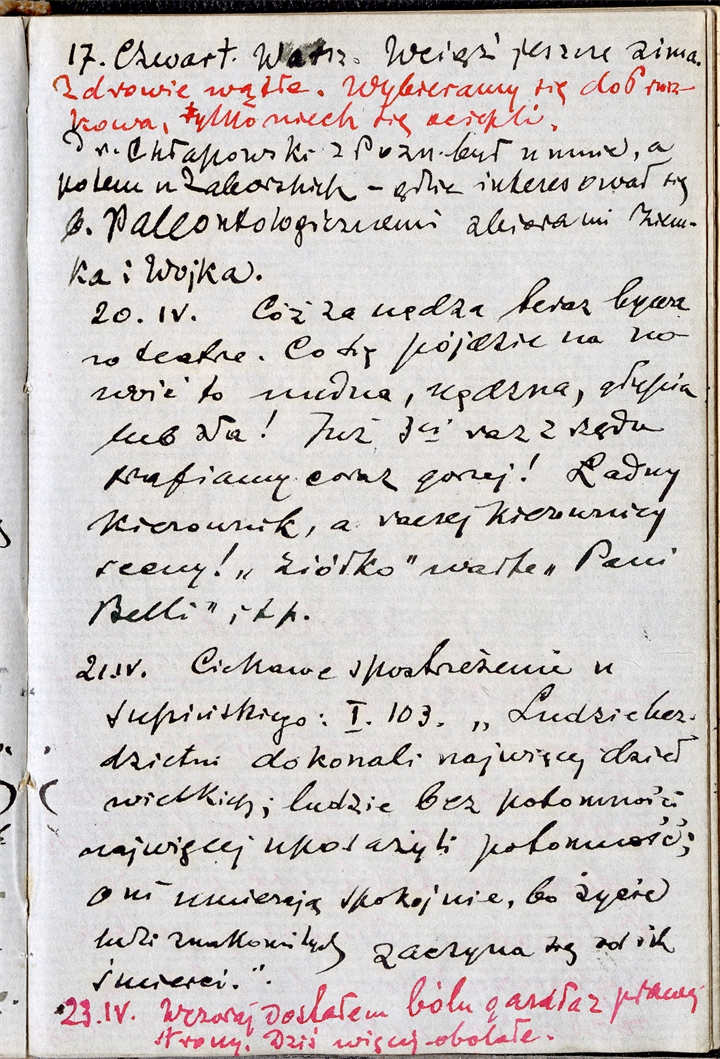 17. Czwart. Warsz. Wciąż jeszcze zima.
Zdrowie wątłe. Wybieramy się do Prusz-
kowa, tylko niech się ociepli.
Dr. Chłapowski z Pozn. był u mnie, a
potem u Zaborskich – gdzie interesował się
b. Paleontologicznemi zbiorami Ziem-
ka i Wojka.
20. IV. Cóż za nędza teraz bywa
w teatre. Co się pójdzie na no-
wość to nudna, nędzna, głupia
lub zła! Już 3ci raz z rzędu
trafiamy coraz gorzej! Ładny
kierownik, a raczej kierownicy
sceny! „Ziółko" warte „Pani
Belli" itp.
21.IV. Ciekawe spostrzeżenie u
Supińskiego: I. 103. „Ludzie bez-
dzietni dokonali najwięcej dzieł
wielkich; ludzie bez potomności
najwięcej uposażyli potomność;
oni umierają spokojnie, bo życie
ludzi znakomitych zaczyna się od ich
śmierci.".
23.IV. Wczoraj dostałem bólu gardła z prawej
strony. Dziś więcej obolałe.